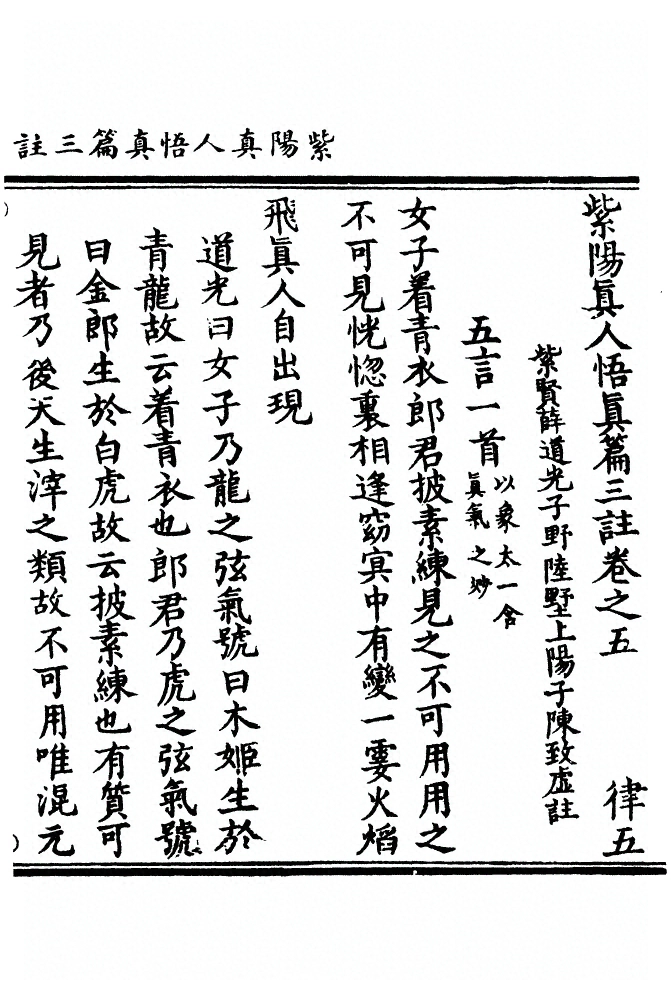 紫陽真人悟真篇三註
紫陽眞人悟眞篇三註卷之五 律五
紫賢薛道光子野陸墅上陽子陳致虛註
五言一首 以象太一含
眞氣之妙
女子着青衣郎君披素練見之不可用用之
不可見恍惚裏相逢窈冥中有變一霎火熖
飛眞人自出現
道光曰女子乃龍之弦氣號曰木姬生於
青龍故云着青衣也郎君乃虎之弦氣號
曰金郎生於白虎故云披素練也有質可
見者乃後天生滓之類故不可用唯混元